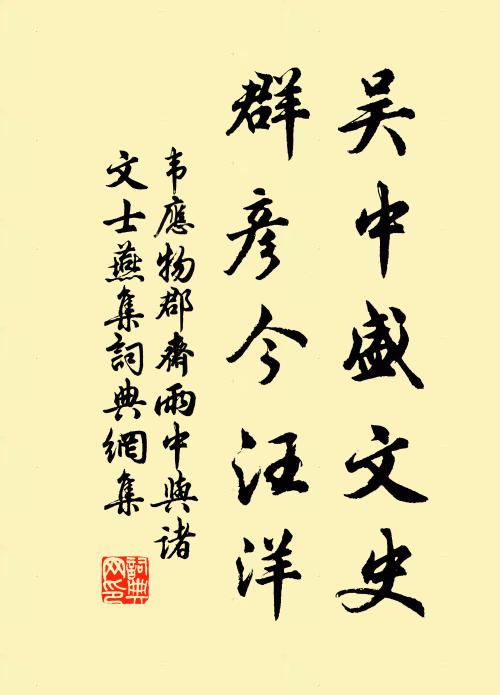 吴中盛文史
群彦今汪洋
韦應物郡齋雨中與諸
文士燕集詞典網集
詞典
网印